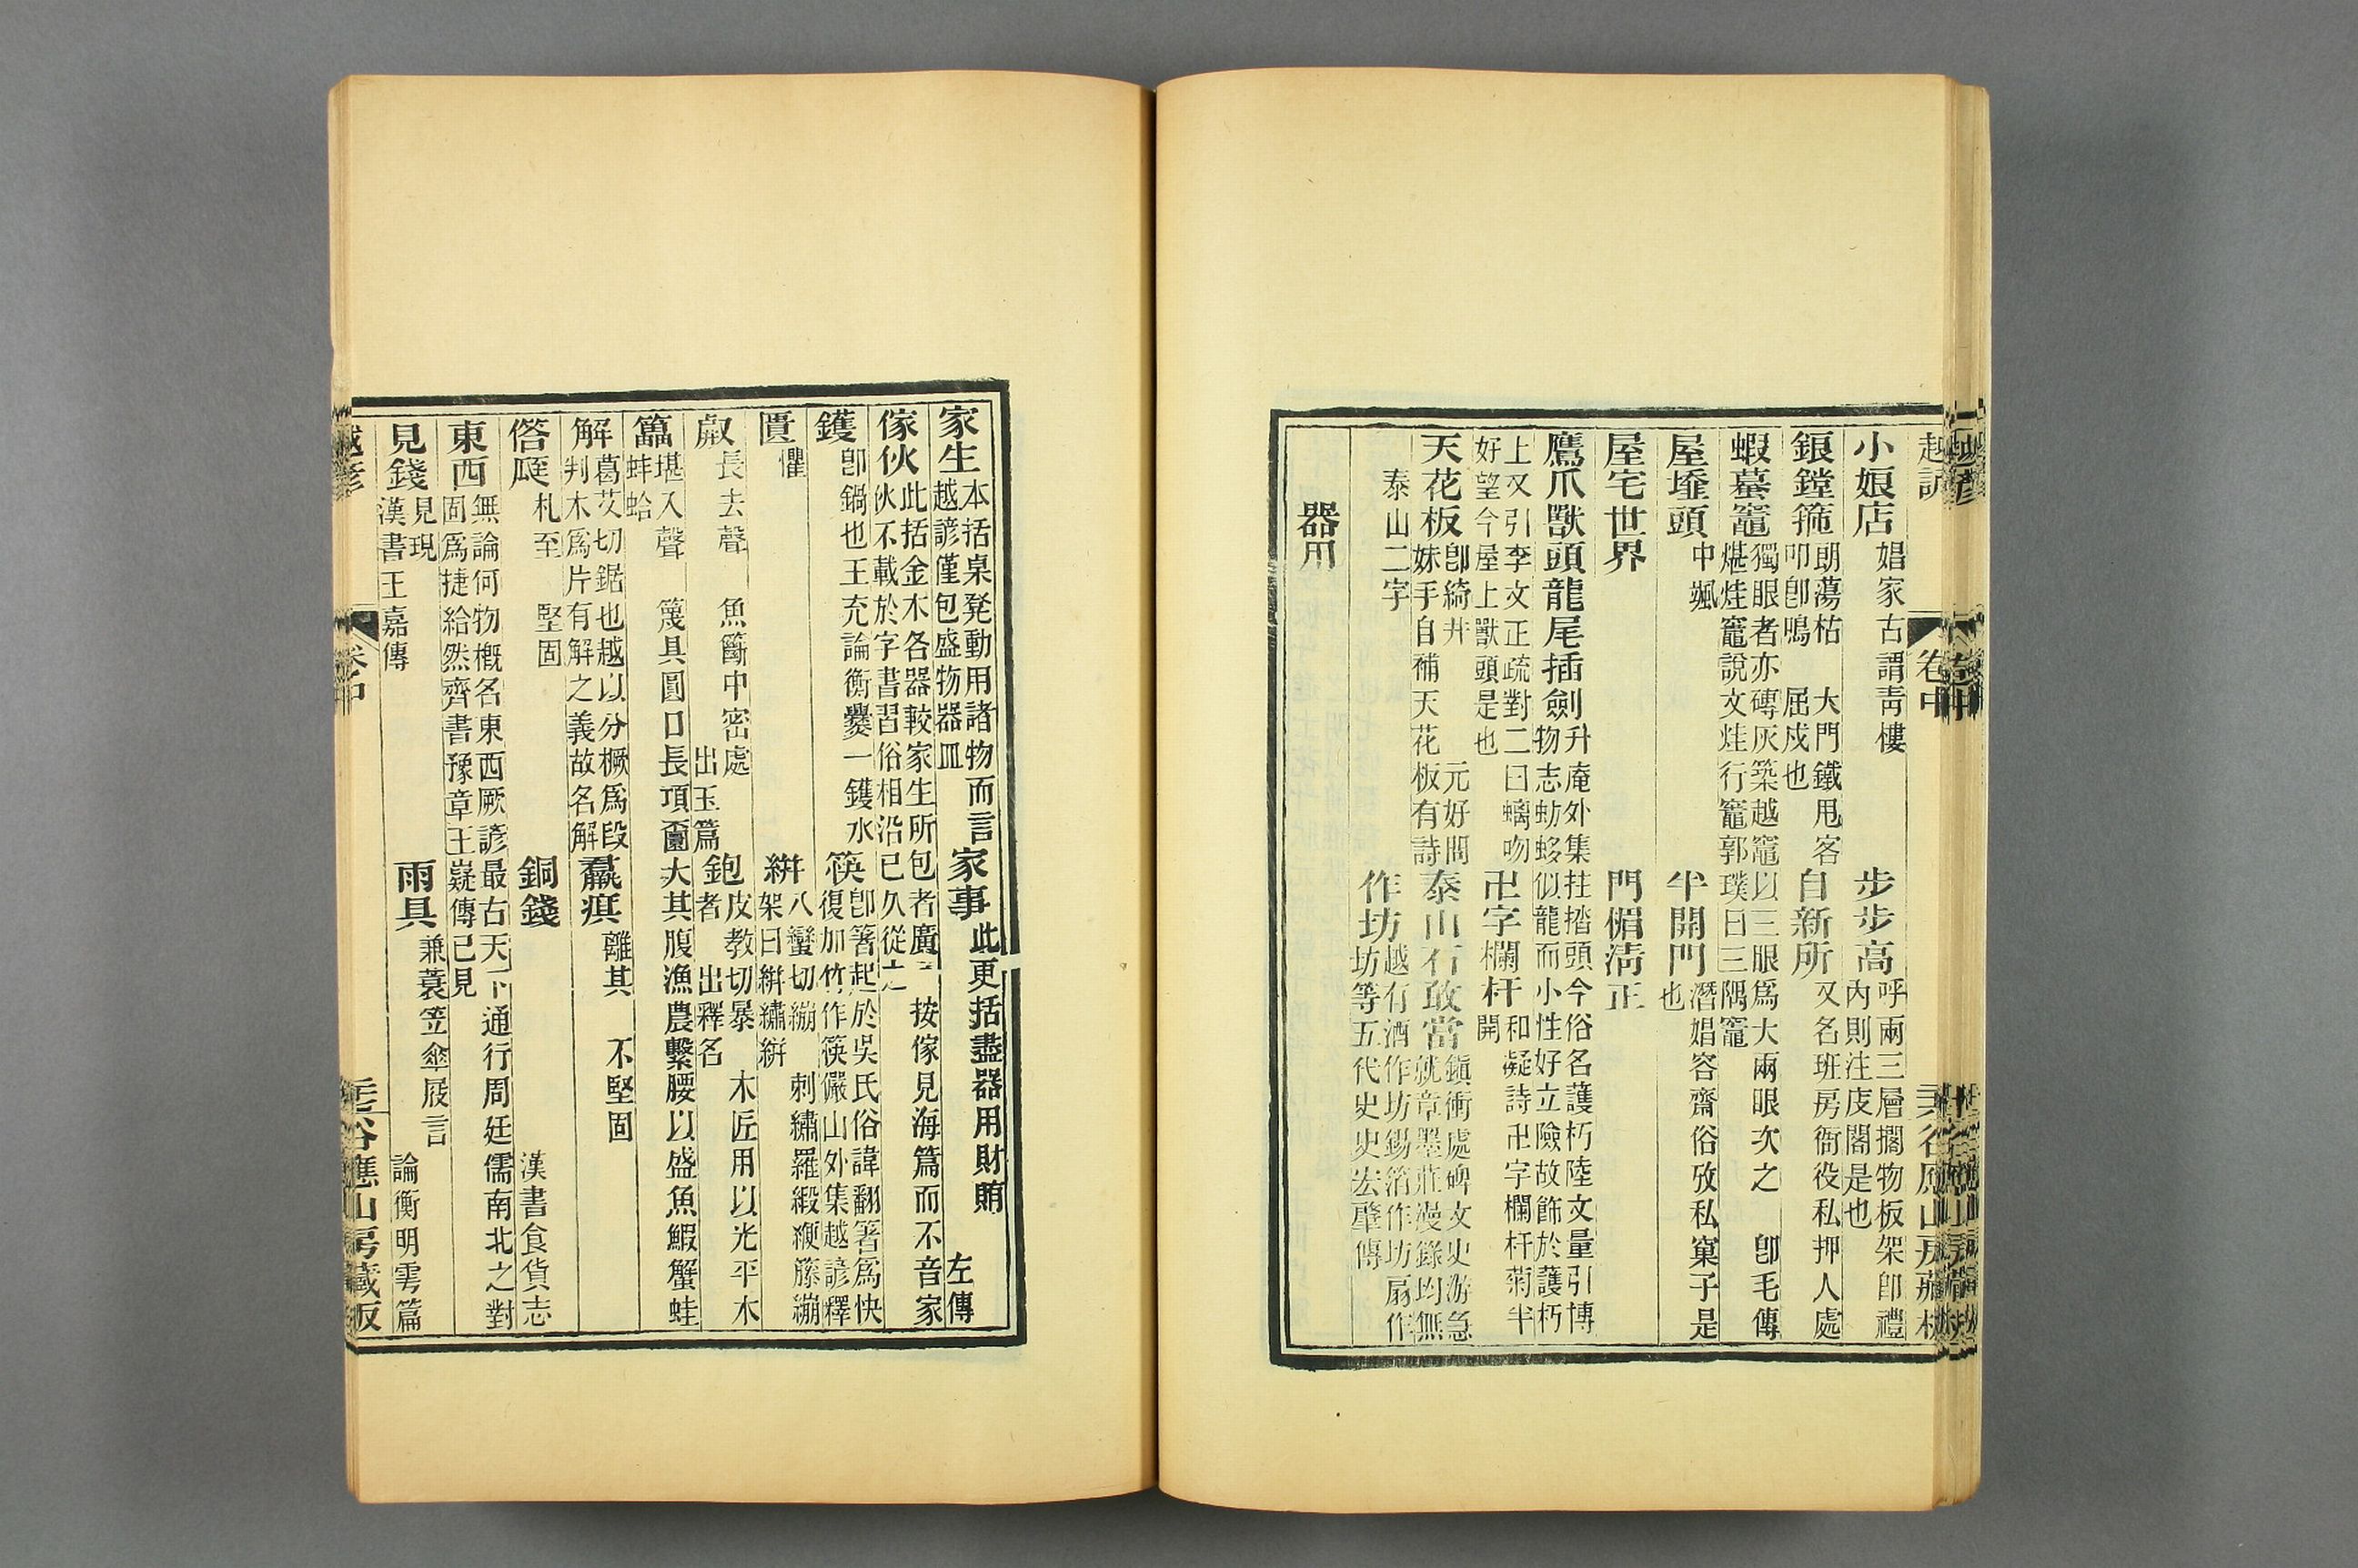 越諺 卷中
小娘店 娼家古謂靑樓 步步高 呼兩三層擱物板架卽禮
內則注庋閣是也
鋃鏜箍 朗蕩枯 大門鐵甩客
叩卽鳴 屈戍也 自新所 又名班房衙役私押人處
蝦蟇竈 獨眼者亦磚灰築越竈以三眼爲大兩眼次之 卽毛傳
煁烓竈說文烓行竈郭璞曰三隅竈
屋 頭 中颯 半開門 潛娼容齋俗攷私窠子是
也
屋宅世界 門楣淸正
鷹爪獸頭龍尾插劍 升庵外集拄㳫頭今俗名護朽陸文量引博
物志蚄蛥似龍而小性好立險故飾於護朽
上又引李文正疏對二曰螭吻 卍字欄杆 和凝詩卍字欄杆菊半
好望今屋上獸頭是也 開
天花板 卽綺井 元好問 泰山石敢當 鎭衝處碑文史游急
妹手自補天花板有詩 就章墨莊漫錄均無
泰山二字 作坊 越有酒作坊錫箔作坊扇作
坊等五代史史宏肇傳
器用
家生 本括桌凳動用諸物而言 家事 此更括盡器用財賄 左傳
越諺僅包盛物器皿
傢伙 此括金木各器較家生所包者廣 按傢見海篇而不音家
伙不載於字書習俗相沿已久從之
鑊 卽鍋也王充論衡爨一鑊水 筷 卽箸起於吳氏俗諱翻箸爲快
復加竹作筷儼山外集越諺釋
匱 懼 絣 八蠻切繃 刺繡羅緞綆籐繃
架曰絣繡絣
㕡 長去聲 魚籪中密處 鉋 皮敎切暴 木匠用以光平木
出玉篇 者 出釋名
簄 堪入聲 篾具圓口長項匾大其腹漁農繫腰以盛魚鰕蟹蛙
蚌蛤
解 葛艾切鋸也越以分橛爲段 羸㾄 離其 不堅固
判木爲片有解之義故名解
偺庭 札至 堅固 銅錢 漢書食貨志
東西 無論何物槪名東西厥諺最古天下通行周廷儒南北之對
固爲捷給然齊書豫章王嶷傳已見
見錢 見現 雨具 兼蓑笠傘屐言 論衡明雩篇
漢書王嘉傳
越諺 卷中 谷應山房藏板